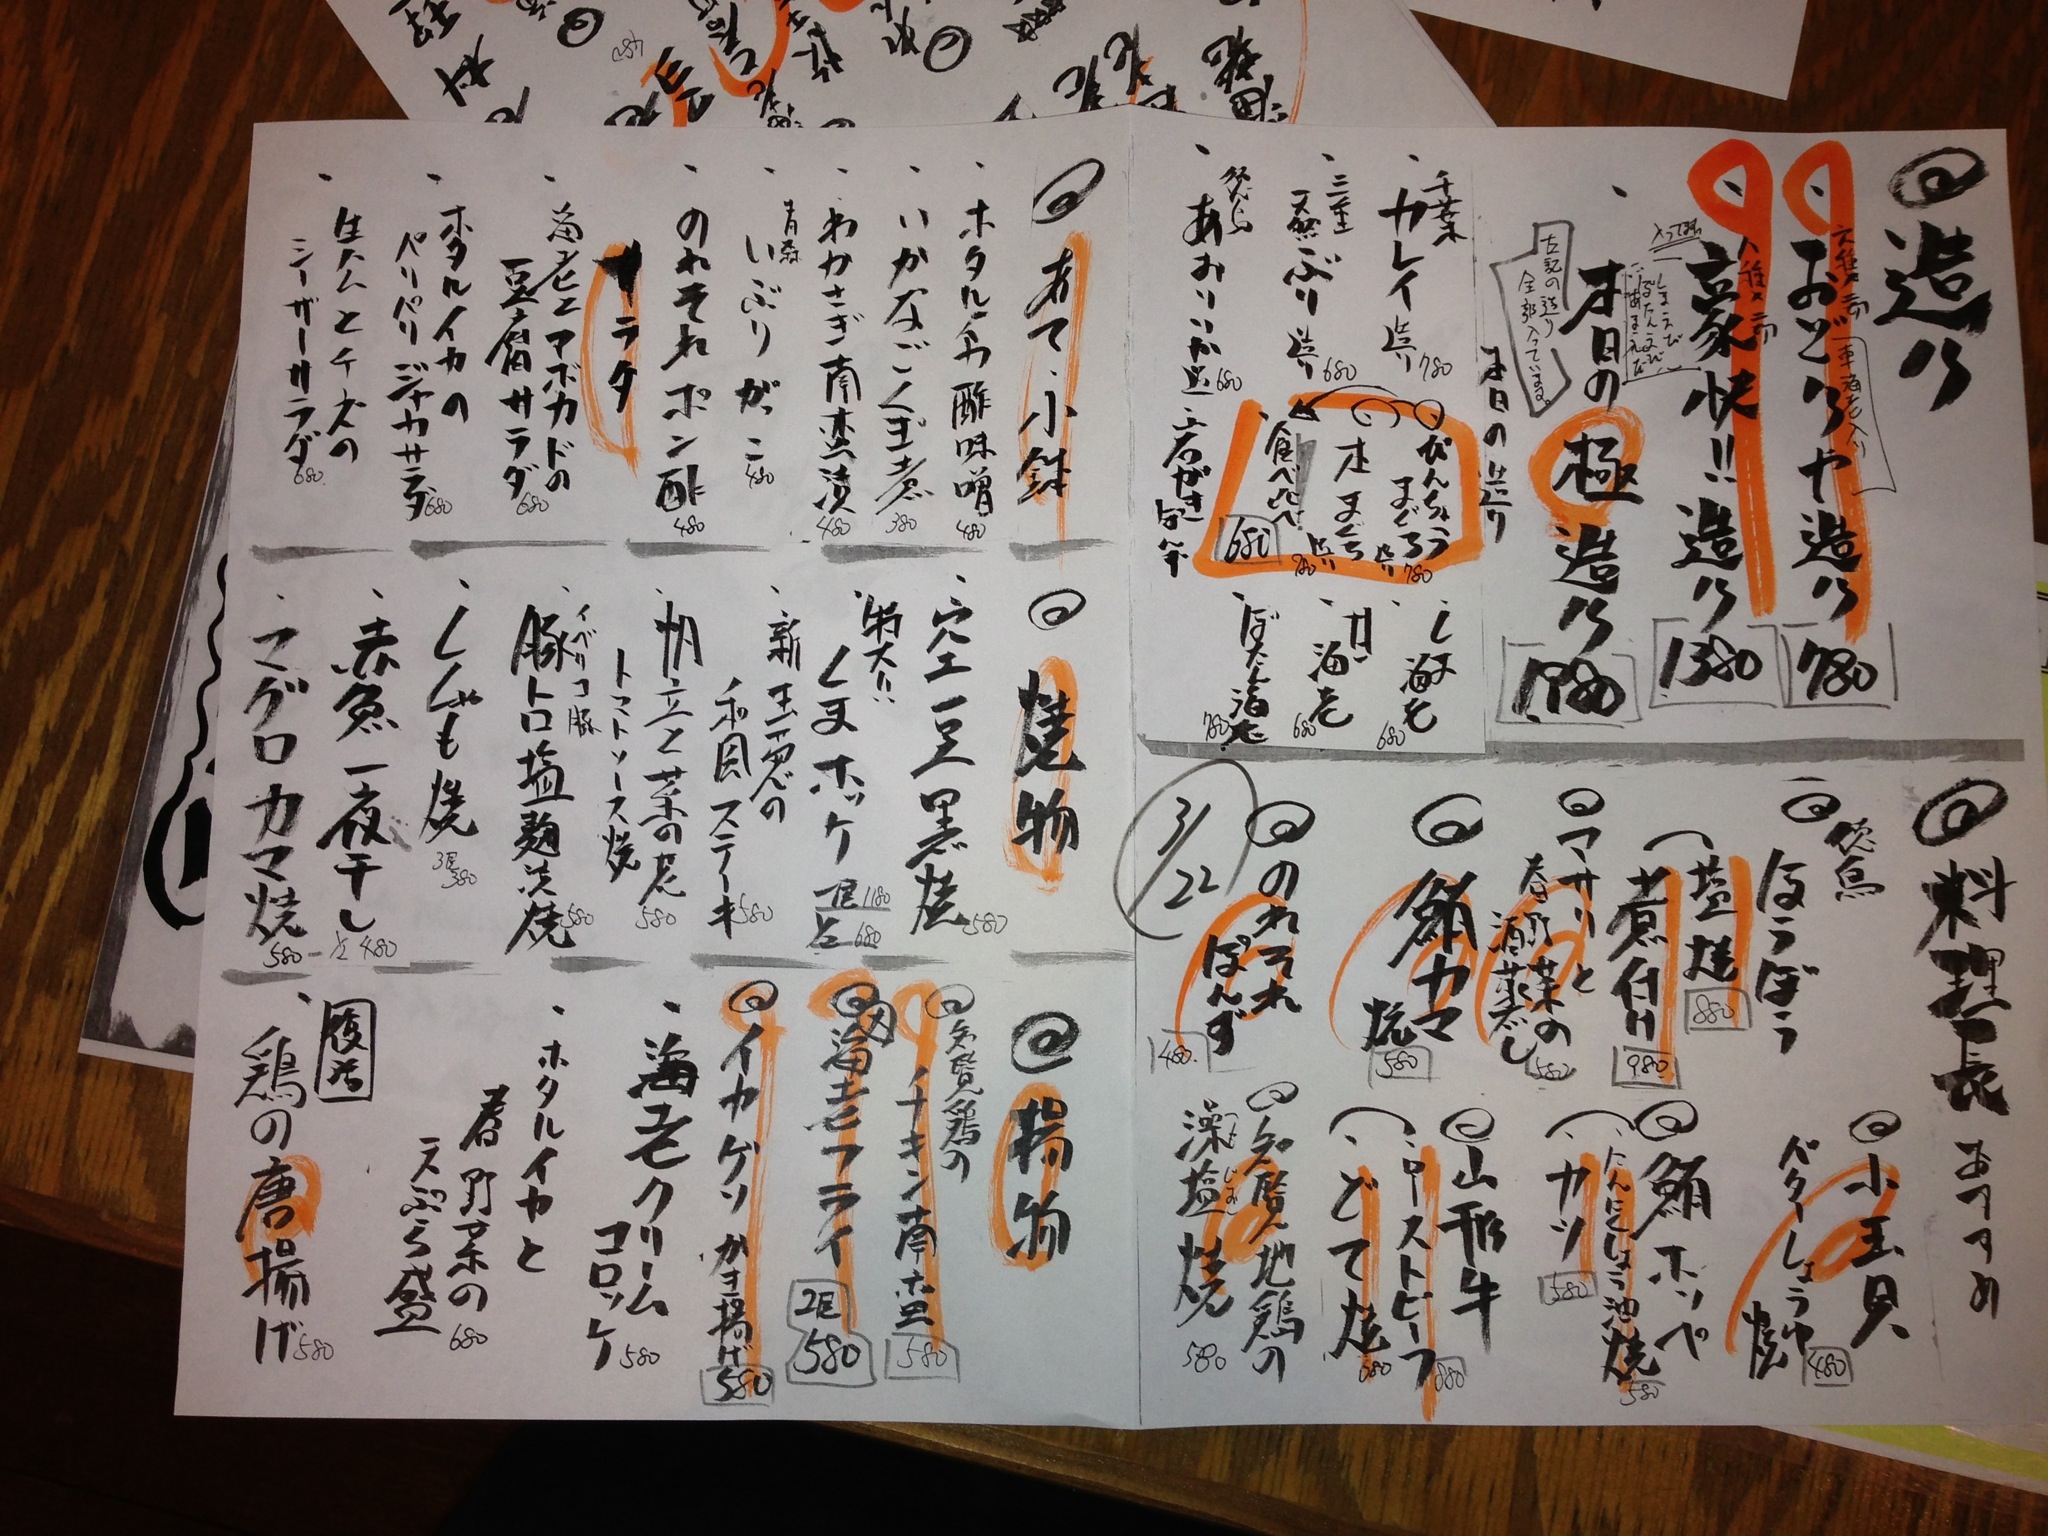 造り
おどりや造り
780
豪快!!造り
1380
本日の極造り
1780
左記の造り
全部入っています。
本日の造り
千葉
カレイ造り
780
三重
天然ぶり造り
680
徳島
あおりいか造
680
びんちょう
まぐろ造り
780
本まぐろ造り
780
食べ比べ
680
岩がきぽん酢
しま海老
680
甘海老
680
ぼたん海老
780
料理長おすすめ
徳島
ほうぼう
塩焼
880
煮付け
980
アサリと
春野菜の
酒蒸し
580
鮪カマ焼
580
のれそれ
ぽんず
480
3/22
小玉貝
バターしょうゆ焼
480
鮪ホッペ
にんにくしょう油焼
580
カツ
580
山形牛
ローストビーフ
880
どて焼
680
知覧地鶏の
藻塩焼
580
あて、小鉢
ホタルイカ酢味噌
480
いかなごくぎ煮
380
わかさぎ南蛮漬
480
青森
いぶりがっこ
480
のれそれポン酢
480
サラダ
海老とアボカドの
豆腐サラダ
680
ホタルイカの
パリパリジャガサラダ
680
生ハムとチーズの
シーザーサラダ
680
焼物
空豆黒焼
580
特大!!
しまホッケ
一尾1180
半680
新玉葱の
和風ステーキ
580
帆立と菜の花
トマトソース焼
580
イベリコ豚
豚トロ塩麹漬焼
580
ししゃも焼
3尾380
赤魚一夜干し
480
マグロカマ焼
580
揚物
知覧鶏の
チキン南蛮
580
大海老フライ
2尾
580
イカゲソかき揚げ
580
海老クリーム
コロッケ
580
ホタルイカと
春野菜の
天ぷら盛
680
復活
鶏の唐揚げ
580